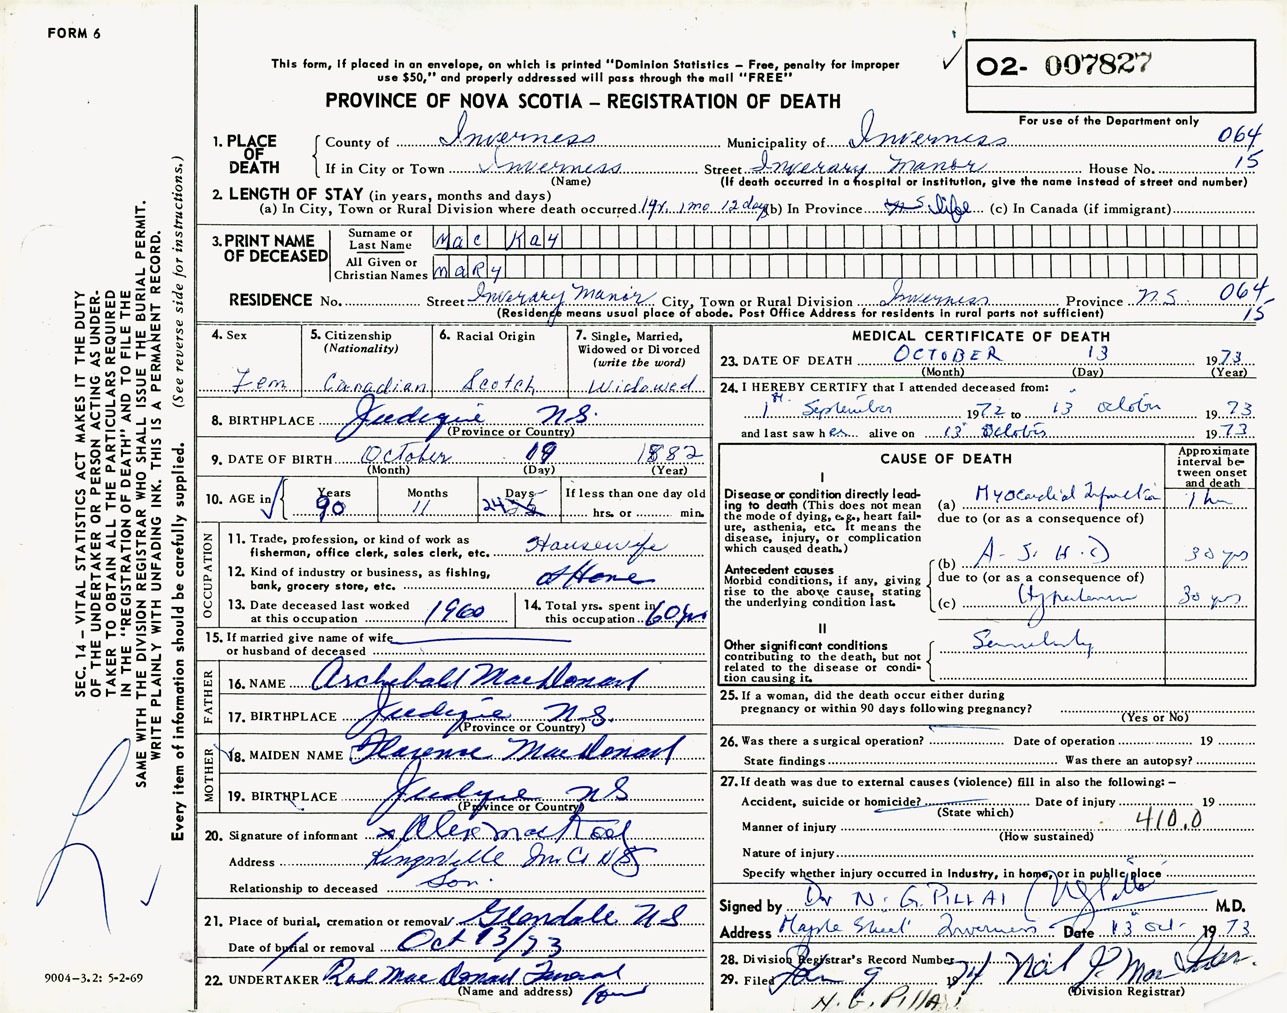 FORM 6
This form, if placed in an envelope, on which is printed "Dominion Statistics – Free, penalty for improper
use $50," and properly addressed will pass through the mail "FREE"
O2- 007827
PROVINCE OF NOVA SCOTIA – REGISTRATION OF DEATH
For use of the Department only
1. PLACE OF DEATH County of Inverness Municipality of Inverness 064
If in City or Town Inverness Street Inverary Manor House No. 15
(Name) (If death occurred in a hospital or institution, give the name instead of street and number)
2. LENGTH OF STAY (in years, months and days)
(a) In City, Town or Rural Division where death occurred 1yr. 1mo 12day (b) In Province life (c) In Canada (if immigrant)
3. PRINT NAME OF DECEASED Surname or Last Name Mac Kay
All Given or Christian Names Mary
RESIDENCE No. Street Inverary Manor City, Town or Rural Division Inverness Province N.S. 064
(Residence means usual place of abode. Post Office Address for residents in rural parts not sufficient) 15
4. Sex Fem
5. Citizenship (Nationality) Canadian
6. Racial Origin Scotch
7. Single, Married, Widowed or Divorced (write the word) Widowed
8. BIRTHPLACE Judique N.S.
(Province or Country)
9. DATE OF BIRTH October 19 1882
(Month) (Day) (Year)
10. AGE in Years 90 Months 11 Days 24 If less than one day old
hrs. or min.
OCCUPATION
11. Trade, profession, or kind of work as
fisherman, office clerk, sales clerk, etc. Housewife
12. Kind of industry or business, as fishing,
bank, grocery store, etc. at Home
13. Date deceased last worked
at this occupation 1960
14. Total yrs. spent in
this occupation 60 yrs
15. If married give name of wife
or husband of deceased
FATHER
16. NAME Archibald MacDonald
17. BIRTHPLACE Judique N.S.
(Province or Country)
MOTHER
18. MAIDEN NAME Florence MacDonald
19. BIRTHPLACE Judique NS
(Province or Country)
20. Signature of informant x Alex Mac
Address Kingsville Inv Co NS
Relationship to deceased Son
21. Place of burial, cremation or removal Glendale NS
Date of burial or removal Oct 13/73
22. UNDERTAKER Rod MacDonald Funeral
(Name and address) Home
MEDICAL CERTIFICATE OF DEATH
23. DATE OF DEATH OCTOBER 13 1973
(Month) (Day) (Year)
24. I HEREBY CERTIFY that I attended deceased from:
1st September 1972 to 13 October 1973
and last saw her alive on 13 October 1973
CAUSE OF DEATH
Approximate interval between onset and death
I
Disease or condition directly lead-
ing to death (This does not mean
the mode of dying, e.g., heart fail-
ure, asthenia, etc. It means the
disease, injury, or complication
which caused death.)
(a) Myocardial Infarction 1 hr
due to (or as a consequence of)
(b) A.S.H.D 30 yrs
due to (or as a consequence of)
Antecedent causes
Morbid conditions, if any, giving
rise to the above cause, stating
the underlying condition last.
(c) Hypertension 30 yrs
II
Other significant conditions
contributing to the death, but not
related to the disease or condi-
tion causing it.
25. If a woman, did the death occur either during
pregnancy or within 90 days following pregnancy?
(Yes or No)
26. Was there a surgical operation? Date of operation 19
State findings Was there an autopsy?
27. If death was due to external causes (violence) fill in also the following: –
Accident, suicide or homicide? Date of injury 19
(State which)
Manner of injury 410.0
(How sustained)
Nature of injury
Specify whether injury occurred in Industry, in home, or in public place
Signed by Dr N. G. PILLAI M.D.
Address Maple Street Inverness Date 13 Oct. 1973
28. Division Registrar's Record Number
29. Filed Jan 9 1974
(Division Registrar)
N. G. PILLAI
SEC. 14 – VITAL STATISTICS ACT MAKES IT THE DUTY
OF THE UNDERTAKER OR PERSON ACTING AS UNDER-
TAKER TO OBTAIN ALL THE PARTICULARS REQUIRED
IN THE "REGISTRATION OF DEATH" AND TO FILE THE
SAME WITH THE DIVISION REGISTRAR WHO SHALL ISSUE THE BURIAL PERMIT.
WRITE PLAINLY WITH UNFADING INK. THIS IS A PERMANENT RECORD.
Every item of information should be carefully supplied. (See reverse side for instructions.)
9004-3.2: 5-2-69